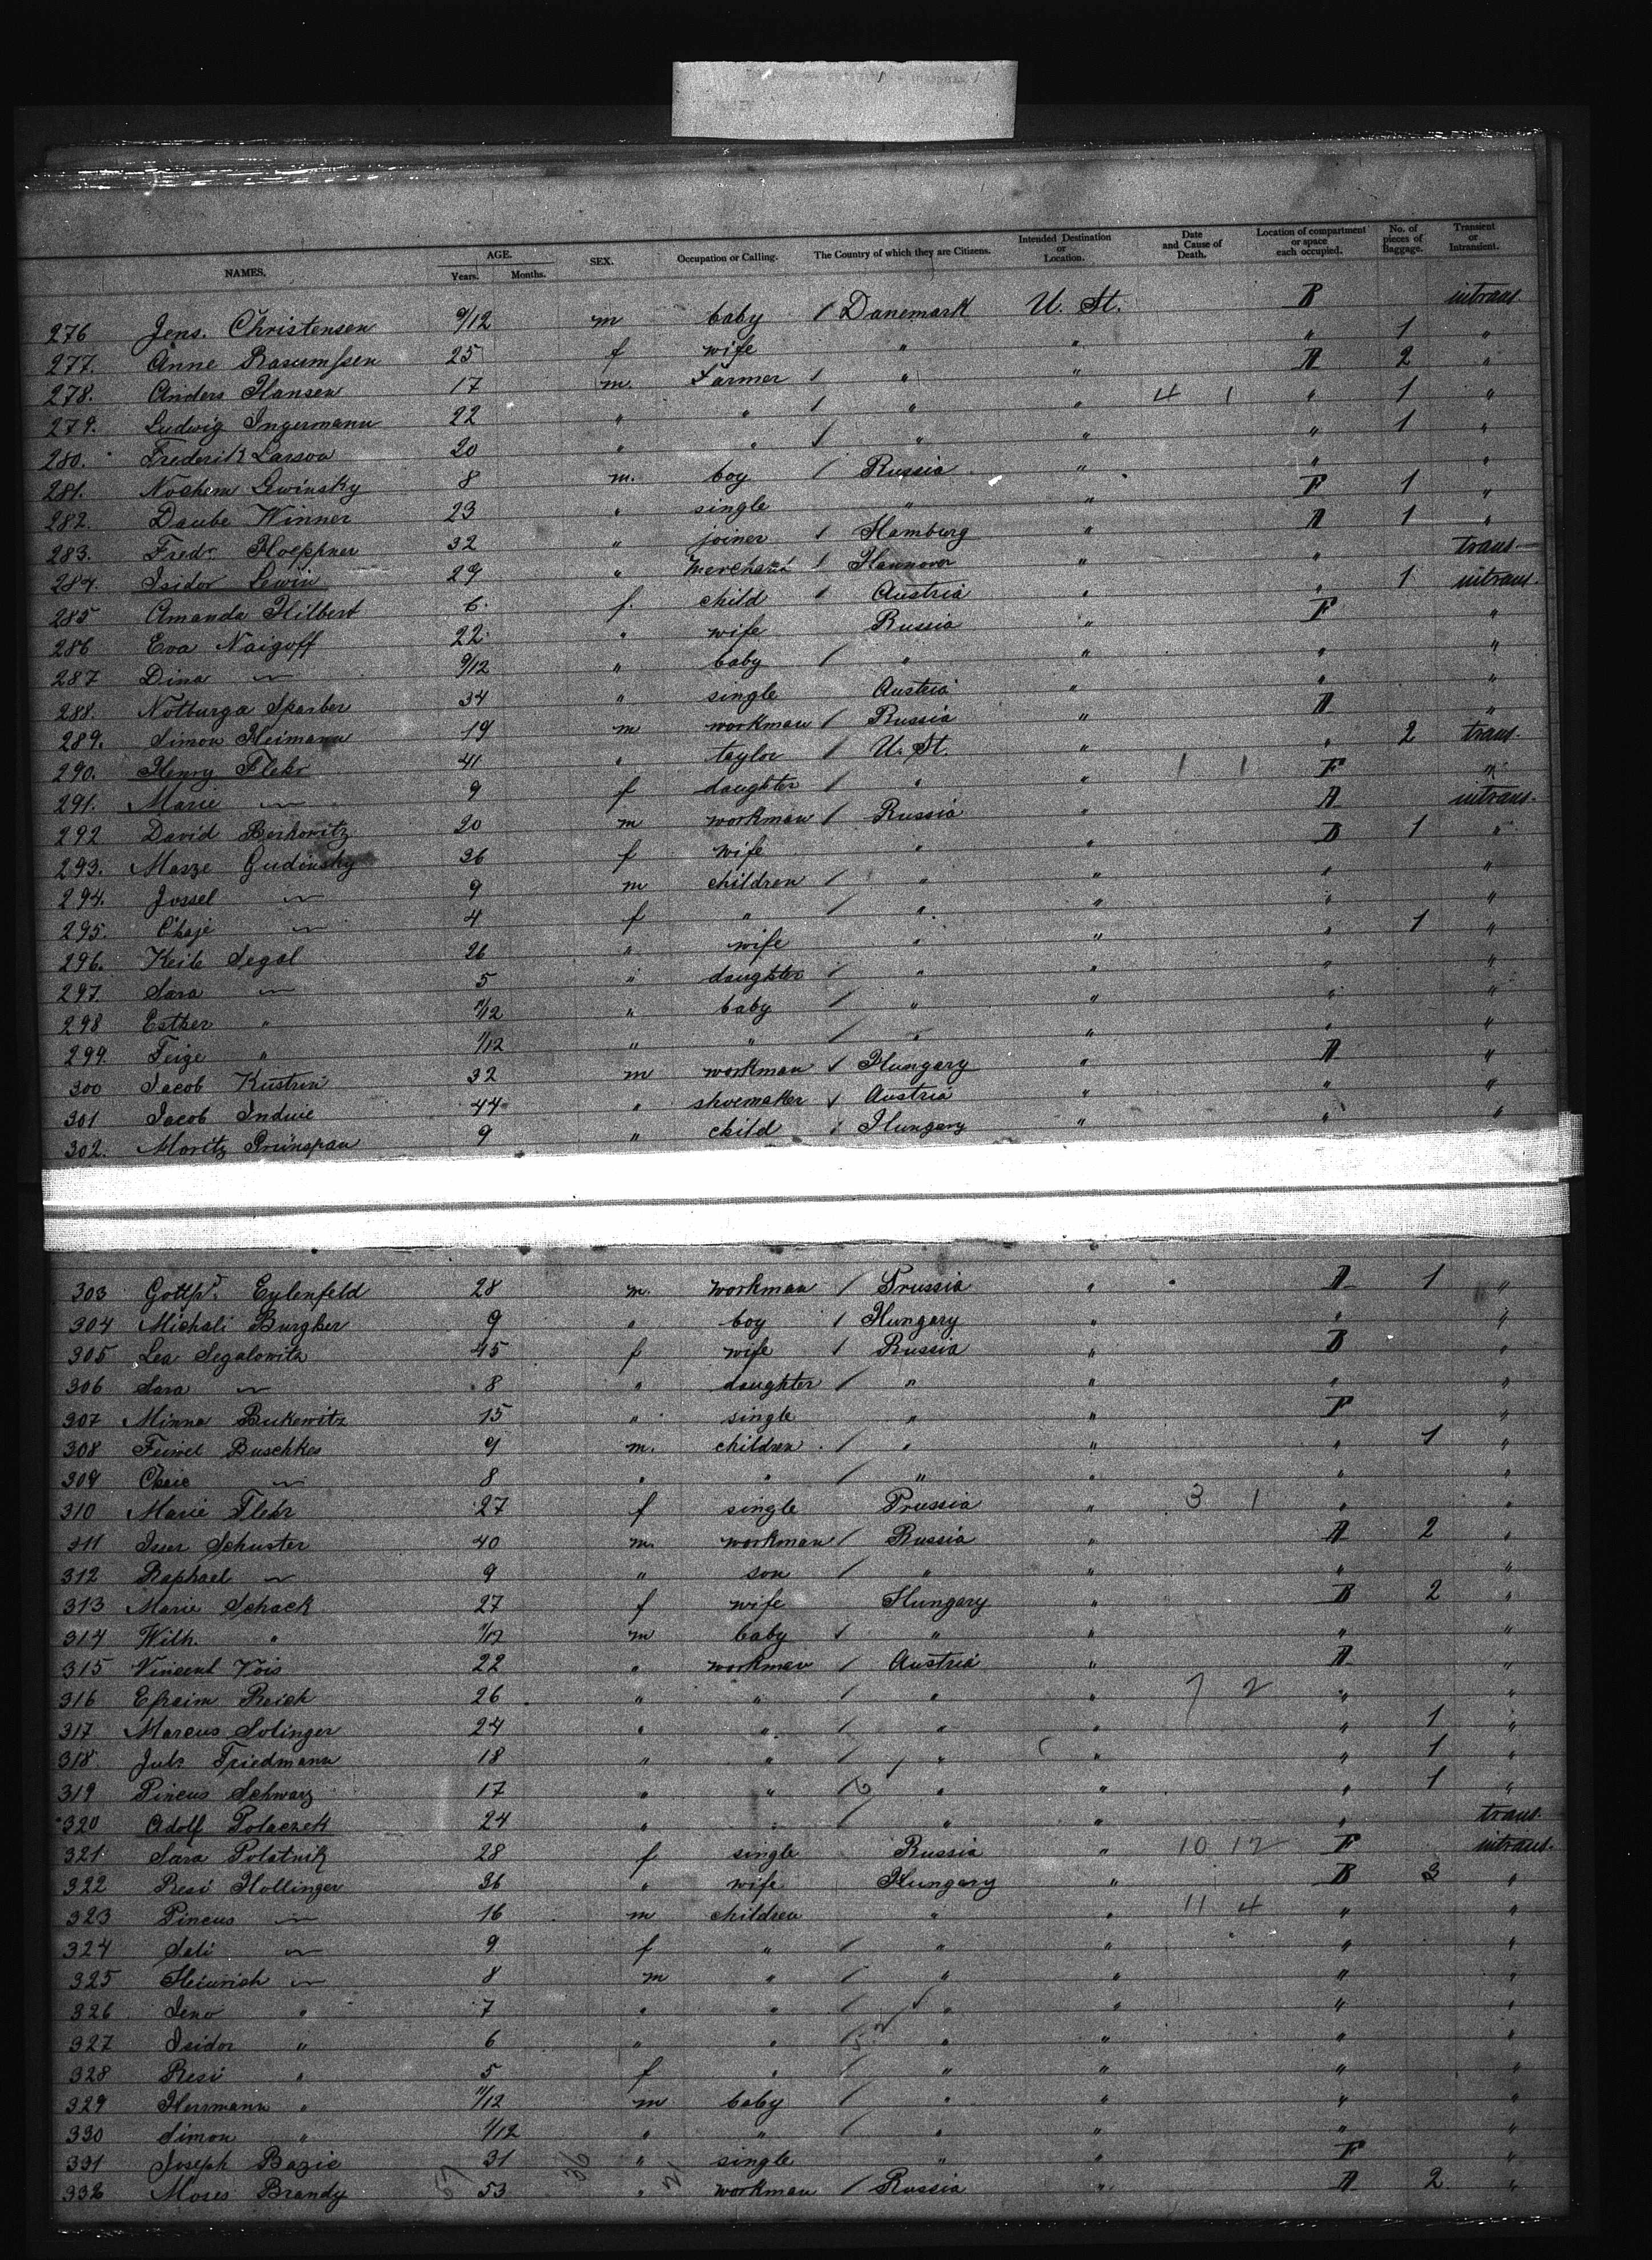 NAMES. AGE. Years. Months. SEX. Occupation or Calling. The Country of which they are Citizens. Intended Destination or Location. Date and Cause of Death. Location of compartment or space each occupied. No. of pieces of Baggage. Transient or Intransient.
276 Jens. Christensen 9/12 m baby / Danemark U. St. B intrans
277. Anne Rasumssen 25 f wife " " " 1 "
278. Anders Hansen 17 m. Farmer / " " A 2 "
279. Ludwig Ingermann 22 " " / " " 4 1 " 1 "
280. Frederik Larson 20 " " / " " " 1 "
281. Nochem Lewinsky 8 m. boy / Russia " " "
282. Daube Winner 23 " single " " F 1 "
283. Fredr. Hoeppner 32 " joiner / Hamburg " A 1 "
284. Isidor Lewin 29 " merchant / Hannover " " trans
285 Amanda Hilbert 6. f. child / Austria " " 1 intrans.
286 Eva Naigoff 22 " wife Russia " F "
287 Dina " 9/12 " baby / " " " "
288. Notburga Sparber 34 " single Austria " " "
289. Simon Heimann 19 m workman / Russia " A "
290. Henry Flehr 41 " taylor / U. St. " " 2 trans.
291. Marie " 9 f daughter / " " 1 1 F "
292 David Berkowitz 20 m workman / Russia " A intrans.
293. Masze Gudinsky 36 f wife " " B 1 "
294. Jossel " 9 m children / " " " "
295. Chaje " 4 f " / " " " "
296. Keile Segal 26 " wife " " " 1 "
297. Sara " 5 " daughter / " " " "
298 Esther " 11/12 " baby / " " " "
299. Feige " 1/12 " " / " " " "
300 Jacob Kustrin 32 m workman / Hungary " A "
301 Jacob Induie 44 " shoemaker / Austria " " "
302. Moritz Prinspan 9 " child / Hungary " " "
303 Gottfr. Eylenfeld 28 m. workman / Prussia " A 1 "
304 Michali Burgher 9 " boy / Hungary " " "
305 Lea Segalowitz 45 f wife / Russia " B "
306 Sara " 8 " daughter / " " " "
307 Minna Bukewitz 15 " single " " F "
308 Feiwel Buschkes 9 m. children / " " " 1 "
309 Chaie " 8 " " / " " " "
310 Marie Flehr 27 f single Prussia " 3 1 " "
311 Isser Schuster 40 m. workman / Russia " A 2 "
312 Raphael " 9 " son / " " " "
313 Marie Schack 27 f wife Hungary " B 2 "
314 Wilh. " 1/12 m baby / " " " "
315 Vincent Vois 22 " workman / Austria " A "
316 Efraim Reich 26 " " / " " 7 2 " "
317 Marcus Solinger 24 " " / " " " 1 "
318 Juls Friedmann 18 " " / " " " 1 "
319 Pincus Schwarz 17 " " / " " " 1 "
320 Adolf Polaczek 24 " " / " " " trans.
321 Sara Polatnik 28 f single Russia " 10 12 F intrans.
322 Resi Hollinger 36 " wife Hungary " B 3 "
323 Pincus " 16 m children " " 11 4 " "
324 Sali " 9 f " / " " " "
325 Heinrich " 8 m " / " " " "
326 Jeno " 7 " " / " " " "
327 Isidor " 6 " " / " " " "
328 Resi " 5 f " / " " " "
329 Herrmann " 11/12 m baby / " " " "
330 Simon " 1/12 " " / " " " "
331 Joseph Bazie 31 " single " " F "
332 Moses Brandy 53 " workman / Russia " A 2 "